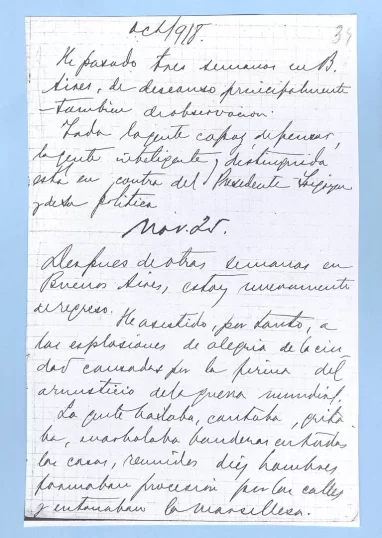 Oct/918.
34
He pasado tres semanas en B.
Aires, de descanso principalmente
tambien de observacion.
Toda la gente capaz de pensar,
la gente inteligente y distinguida
está en contra del Presidente Irigoyen
y de su politica
Nov. 25.
Despues de otras semanas en
Buenos Aires, estoy nuevamente
de regreso.
He asistido, por tanto, a
las esplosiones de alegria de la ciu
dad causadas por la firma del
armisticio de la guerra mundial.
La gente bailaba, cantaba, grita
ba, enarbolaba banderas en todas
las casas, reunidos diez hombres
formaban procesión por las calles
y entonaban la marsellesa.